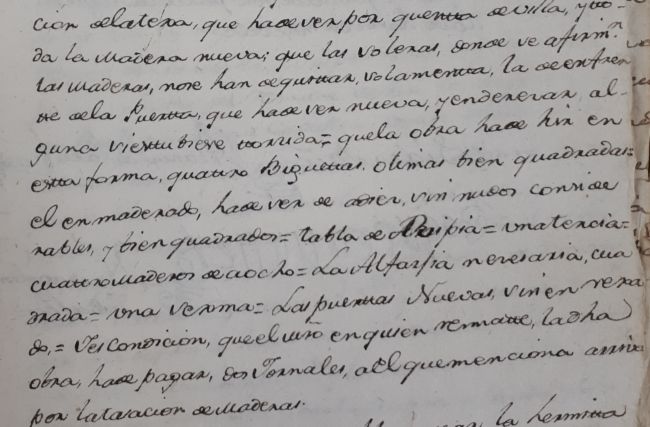 cion de latexa, que hade ser por quenta de villa, y to-
da la Madera nueva; que las soleras, donde se afirm.n
las maderas, nose han dequittar, solamentte, la de enfren
tte dela Puertta, que hade ser nueva, y enderezar al-
guna si esttubiere ttorzida= quela obra hade hir en
estta forma, quattro Biguettas, olimas bien quadradas=
el enmaderado, hade ser de adiez, sin nudos conside
rables, y bien quadrados= tabla de Ripia= una tencia=
cuattro Maderos de aocho= La Alfarjia necesaria, cua
drada= una serma= Las puerttas Nuevas, sin enrexa
do,= Yes Condicion, que el mrõ en quien rematte, la dha
obra, hade pagar, dos Jornales, a el que menciona arriva
por latasacion de Maderas.
la hermitta